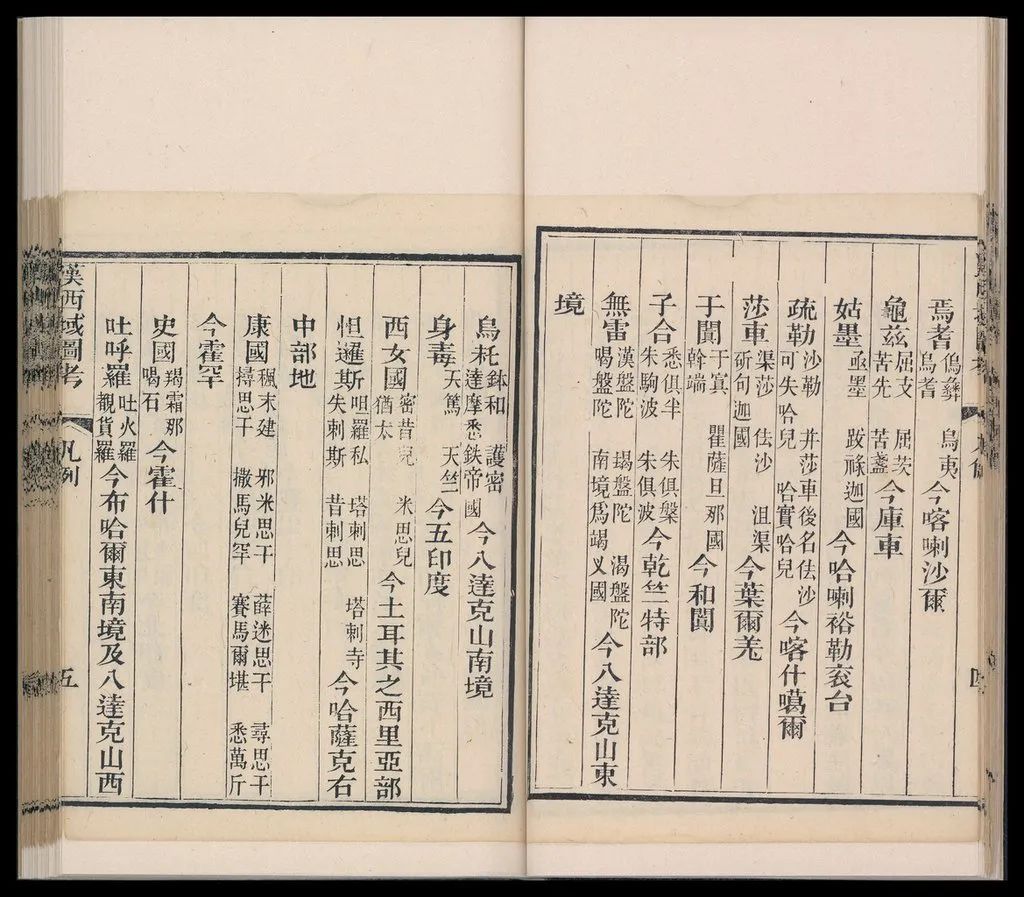 焉耆 傿彝 烏耆 烏夷 今喀喇沙爾
龜茲 屈支 屈茨 苦先 苦盞 今庫車
姑墨 亟墨 跋祿迦國 今哈喇裕勒袞台
疏勒 沙勒 并莎車後名佉沙 可失哈兒 哈實哈兒 今喀什噶爾
莎車 渠莎 佉沙 沮渠 斫句迦國 今葉爾羌
于闐 于寘 瞿薩旦那國 斡端 今和闐
子合 悉俱半 朱俱槃 朱駒波 朱俱波 今乾竺特部
無雷 漢盤陀 朅盤陀 渴盤陀 喝盤陀 南境爲竭叉國 今八達克山東
境
四
烏秅 鉢和 護密 達摩悉鉄帝國 今八達克山南境
身毒 天篤 天竺 今五印度
西女國 密昔兒 米思兒 猶太 今土耳其之西里亞部
怛邏斯 呾羅私 塔剌思 塔剌寺 失剌斯 昔剌思 今哈薩克右
中部地
康國 颯末建 邪米思干 薛迷思干 尋思干 撏思干 撒馬兒罕 賽馬爾堪 悉萬斤
今霍罕
史國 羯霜那 喝石 今霍什
吐呼羅 吐火羅 覩貨羅 今布哈爾東南境及八達克山西
漢西域圖考 凡例 五